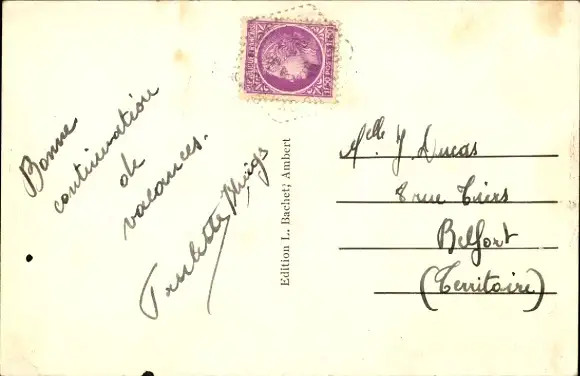 Bonne
continuation
de
vacances.
Edition L. Bachet, Ambert
Mlle J. Ducas
8 rue Thiers
Belfort
(Territoire)